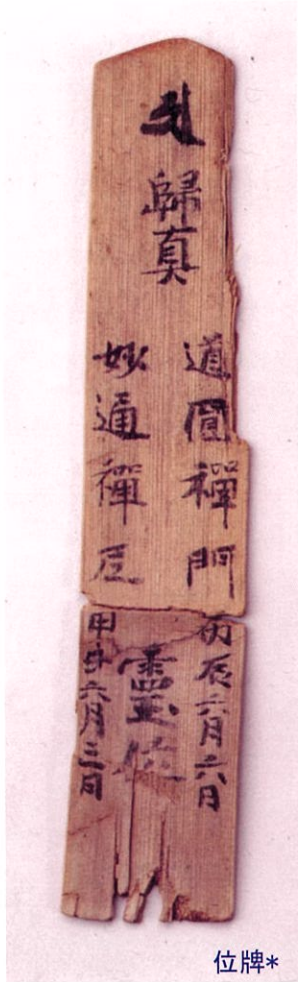 歸真
道圓禪門
丙辰六月六日
靈位
妙通禪尼
甲 六月三日
位牌*